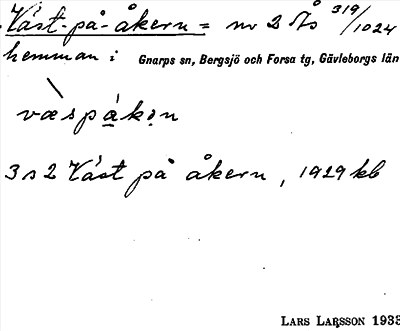 Väst-på-åkern = nr 2 Ås 319/1024
hemman i Gnarps sn, Bergsjö och Forsa tg, Gävleborgs län
væspákn
3 s 2 Väst på åkern, 1929 kb
LARS LARSSON 1933